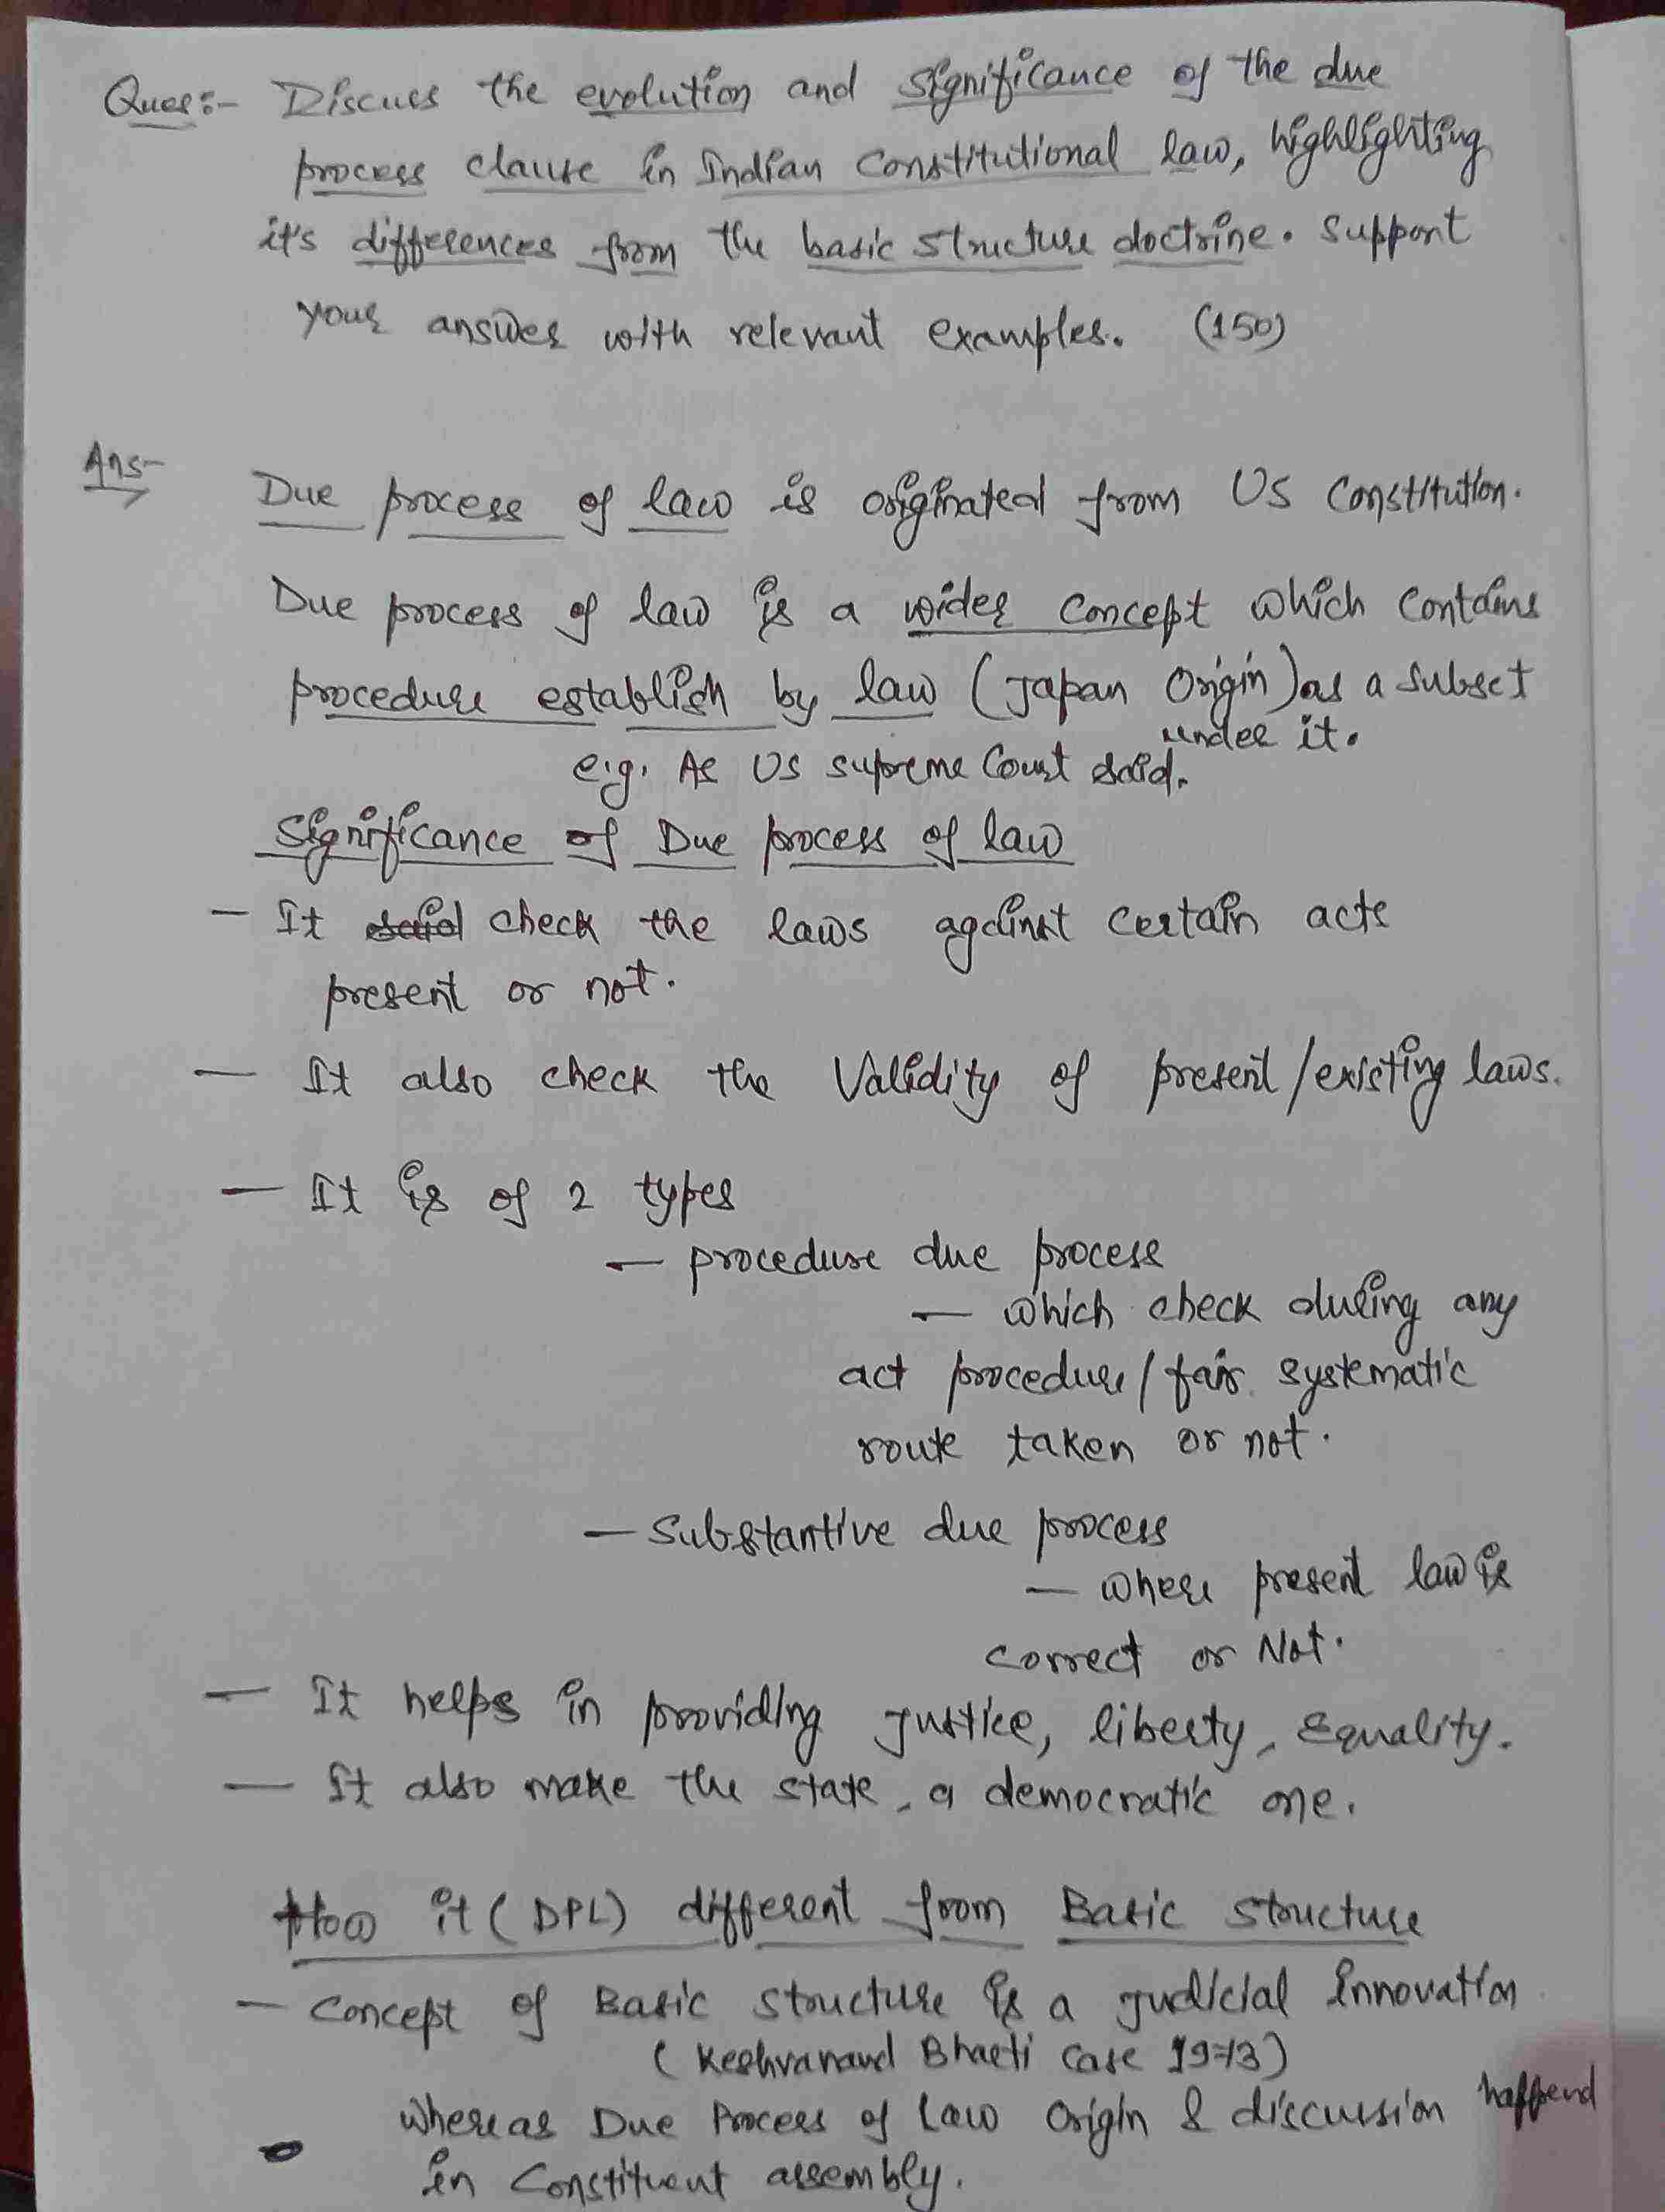 Ques:- Discuss the evolution and significance of the due
process clause in Indian Constitutional law, highlighting
it's differences from the basic structure doctrine. Support
your answer with relevant examples. (150)
Ans-
Due process of law is originated from US Constitution.
Due process of law is a wider concept which contains
procedure establish by law (Japan Origin) as a subset
under it.
e.g. As US supreme Court said.
Significance of Due process of law
- It said check the laws against certain acts
present or not.
- It also check the validity of present/existing laws.
- It is of 2 types
- procedure due process
- which check during any
act procedure/fair systematic
route taken or not.
- Substantive due process
- where present law is
correct or Not.
- It helps in providing justice, liberty, equality.
- It also make the state, a democratic one.
How it (DPL) different from Basic Structure
- Concept of Basic structure is a judicial innovation
(Keshvanand Bharti case 1973)
whereas Due Process of Law origin & discussion happend
in Constituent assembly.